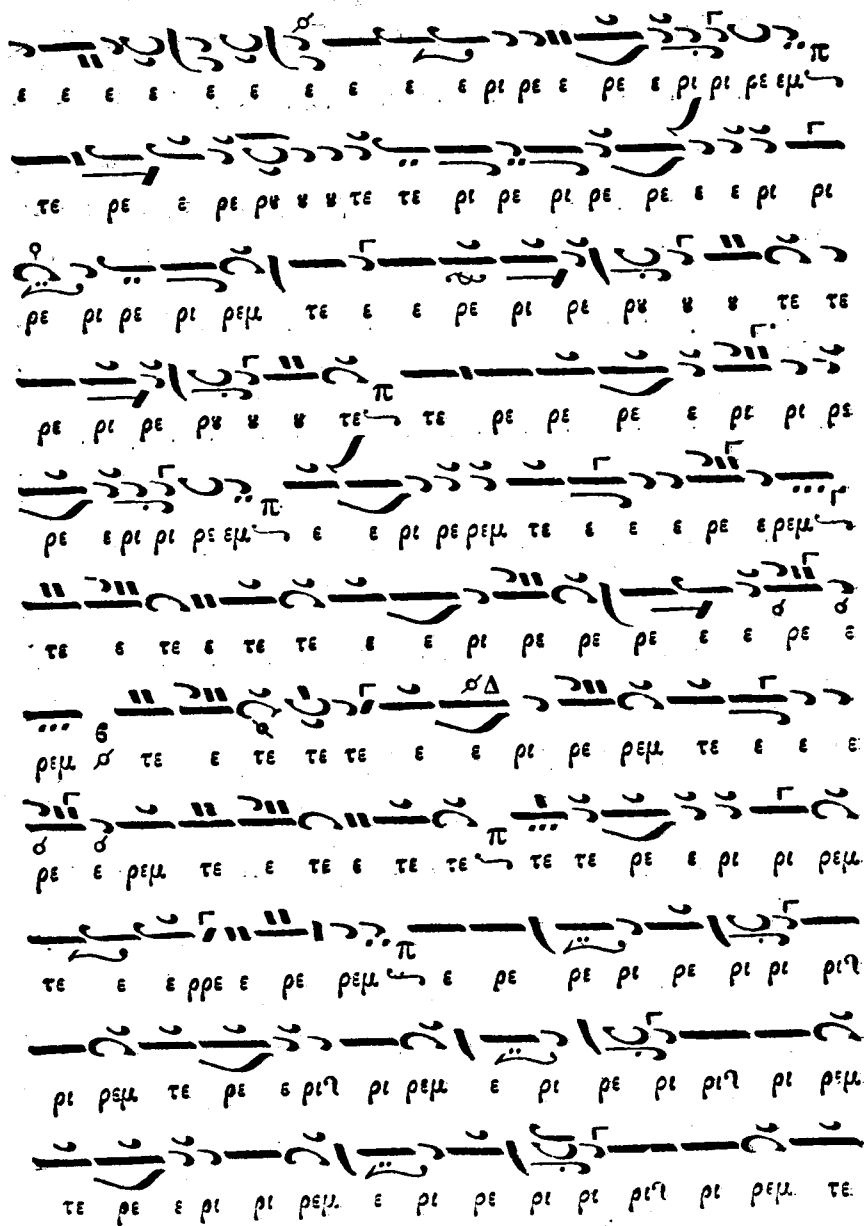 ε ε ε ε ε ε ε ε ε ε ε ρι ρε ε ρε ε ρι ρι ρε εμ
τε ρε ε ρε ρȣ ȣ ȣ τε τε ρι ρε ρι ρε ρε ε ε ρι ρι
ρε ρι ρε ρι ρεμ τε ε ε ρε ρι ρε ρȣ ȣ ȣ τε τε
ρε ρι ρε ρȣ ȣ ȣ τε τε ρε ρε ρε ε ρε ρι ρε
ρε ε ρι ρι ρε εμ ε ε ρι ρε ρεμ τε ε ε ε ρε ε ρεμ
τε ε τε ε τε τε ε ε ρι ρε ρε ρε ε ε ρε ε
ρεμ τε ε τε τε τε ε ε ρι ρε ρεμ τε ε ε ε
ρε ε ρεμ τε ε τε ε τε τε τε τε ρε ε ρι ρι ρεμ
τε ε ε ρρε ε ρε ρεμ ε ρε ρε ρι ρε ρι ρι
ρι ρεμ τε ρε ε ρι ρεμ ε ρι ρε ρι ρι ρεμ
τε ρε ε ρι ρι ρεμ ε ρι ρε ρι ρι ρι ρεμ τε